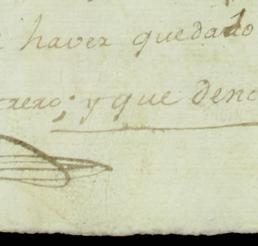 haver quedado
rrero; y que deno